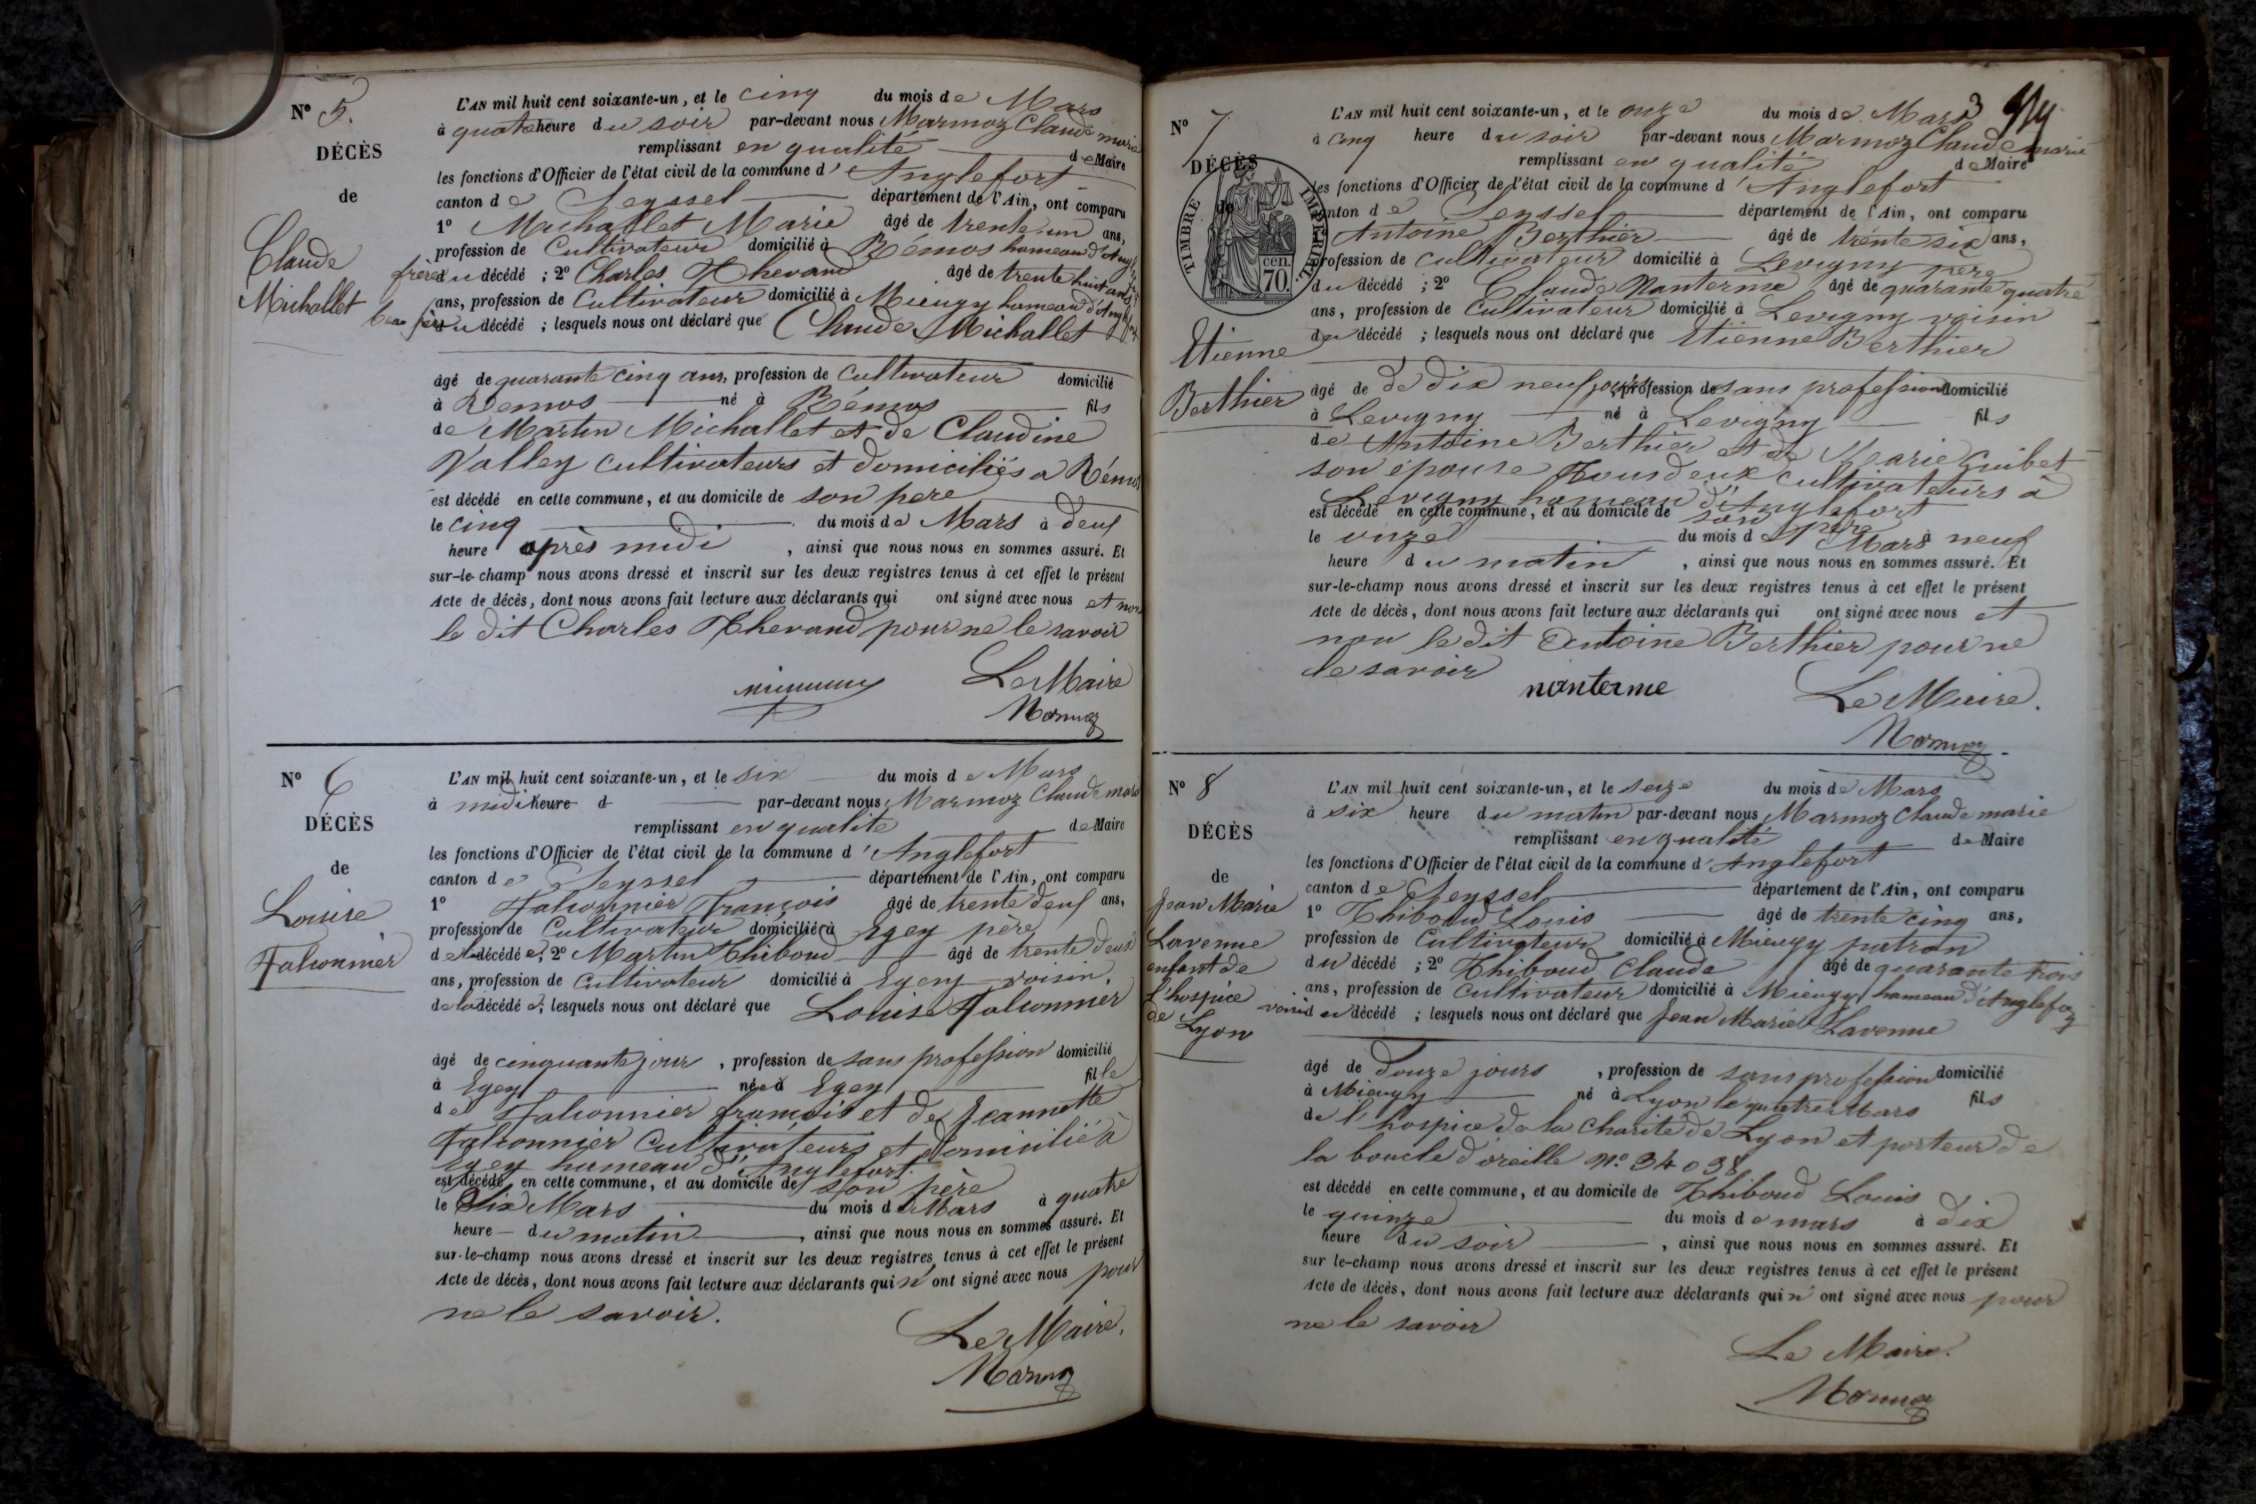 N° 5.
DÉCÈS
de
Claude
Michallet
L'AN mil huit cent soixante-un, et le cinq du mois de Mars
à quatre heure du soir par-devant nous Marmoz Claude marie
remplissant en qualité de Maire
les fonctions d'Officier de l'état civil de la commune d'Anglefort
canton de Seyssel département de l'Ain, ont comparu
1° Michallet Marie âgé de trente un ans,
profession de Cultivateur domicilié à Rémos hameau d'Anglefort
frère du décédé ; 2° Charles Thevand âgé de trente huit ans
ans, profession de Cultivateur domicilié à Mieugy hameau d'Anglefort
beau frère du décédé ; lesquels nous ont déclaré que Claude Michallet
âgé de quarante cinq ans, profession de Cultivateur domicilié
à Rémos né à Rémos fils
de Martin Michallet et de Claudine
Valley cultivateurs et domiciliés a Rémos
est décédé en cette commune, et au domicile de son pere
le cinq du mois de Mars à deux
heure après midi, ainsi que nous nous en sommes assuré. Et
sur-le-champ nous avons dressé et inscrit sur les deux registres tenus à cet effet le présent
Acte de décès, dont nous avons fait lecture aux déclarants qui ont signé avec nous et non
le dit Charles Thevand pour ne le savoir
Le Maire
Marmoz
N° 6
DÉCÈS
de
Louise
Falconnier
L'AN mil huit cent soixante-un, et le six du mois de Mars
à midi heure d par-devant nous Marmoz Claude marie
remplissant en qualité de Maire
les fonctions d'Officier de l'état civil de la commune d'Anglefort
canton de Seyssel département de l'Ain, ont comparu
1° Falconnier François âgé de trente deux ans,
profession de Cultivateur domicilié à Egey père
de la décédée; 2° Martin Thiboud âgé de trente deux
ans, profession de Cultivateur domicilié à Egey voisin,
de la décédée; lesquels nous ont déclaré que Louise Falconnier
âgé de cinquante jour, profession de sans profession domicilié
à Egey née à Egey fille
de Falconnier françois et de Jeannette
Falconnier Cultivateurs et domicilié à
Egey hameau d'Anglefort.
est décédé en cette commune, et au domicile de son père
le Six Mars du mois de Mars à quatre
heure du matin, ainsi que nous nous en sommes assuré. Et
sur-le-champ nous avons dressé et inscrit sur les deux registres tenus à cet effet le présent
Acte de décès, dont nous avons fait lecture aux déclarants qui n'ont signé avec nous pour
ne le savoir.
Le Maire.
Marmoz
3
N° 7
DÉCÈS
de
TIMBRE IMPÉRIAL
70 cen.
Etienne
Berthier
L'AN mil huit cent soixante-un, et le onze du mois de Mars
à cinq heure du soir par-devant nous Marmoz Claude marie
remplissant en qualité de Maire
les fonctions d'Officier de l'état civil de la commune d'Anglefort
canton de Seyssel département de l'Ain, ont comparu
Antoine Berthier âgé de trente six ans,
profession de Cultivateur domicilié à Levigny père
du décédé ; 2° Claude Nanterme âgé de quarante quatre
ans, profession de Cultivateur domicilié à Levigny voisin
du décédé ; lesquels nous ont déclaré que Etienne Berthier
âgé de de dix neuf jours, profession de sans profession domicilié
à Levigny né à Levigny fils
de Antoine Berthier et de Marie Guibet
son épouse tous deux cultivateurs à
Levigny hameau d'Anglefort
est décédé en cette commune, et au domicile de son père
le onze du mois de Mars à neuf
heure du matin, ainsi que nous nous en sommes assuré. Et
sur-le-champ nous avons dressé et inscrit sur les deux registres tenus à cet effet le présent
Acte de décès, dont nous avons fait lecture aux déclarants qui ont signé avec nous et
non le dit Antoine Berthier pour ne
le savoir
nanterme
Le Maire.
Marmoz
N° 8
DÉCÈS
de
Jean Marie
Lavenne
enfant de
l'hospice
de Lyon
L'AN mil huit cent soixante-un, et le seize du mois de Mars
à six heure du matin par-devant nous Marmoz Claude marie
remplissant en qualité de Maire
les fonctions d'Officier de l'état civil de la commune d'Anglefort
canton de Seyssel département de l'Ain, ont comparu
1° Thiboud Louis âgé de trente cinq ans,
profession de Cultivateur domicilié à Mieugy patron
du décédé ; 2° Thiboud Claude âgé de quarante trois
ans, profession de Cultivateur domicilié à Mieugy hameau d'Anglefort
voisin du décédé ; lesquels nous ont déclaré que Jean Marie Lavenne
âgé de Douze jours, profession de sans profession domicilié
à Mieugy né à Lyon le quatre Mars fils
de l'hospice de la Charité de Lyon et porteur de
la boucle d'oreille N° 34038
est décédé en cette commune, et au domicile de Thiboud Louis
le quinze du mois de mars à dix
heure du soir, ainsi que nous nous en sommes assuré. Et
sur le-champ nous avons dressé et inscrit sur les deux registres tenus à cet effet le présent
Acte de décès, dont nous avons fait lecture aux déclarants qui n'ont signé avec nous pour
ne le savoir
Le Maire.
Marmoz